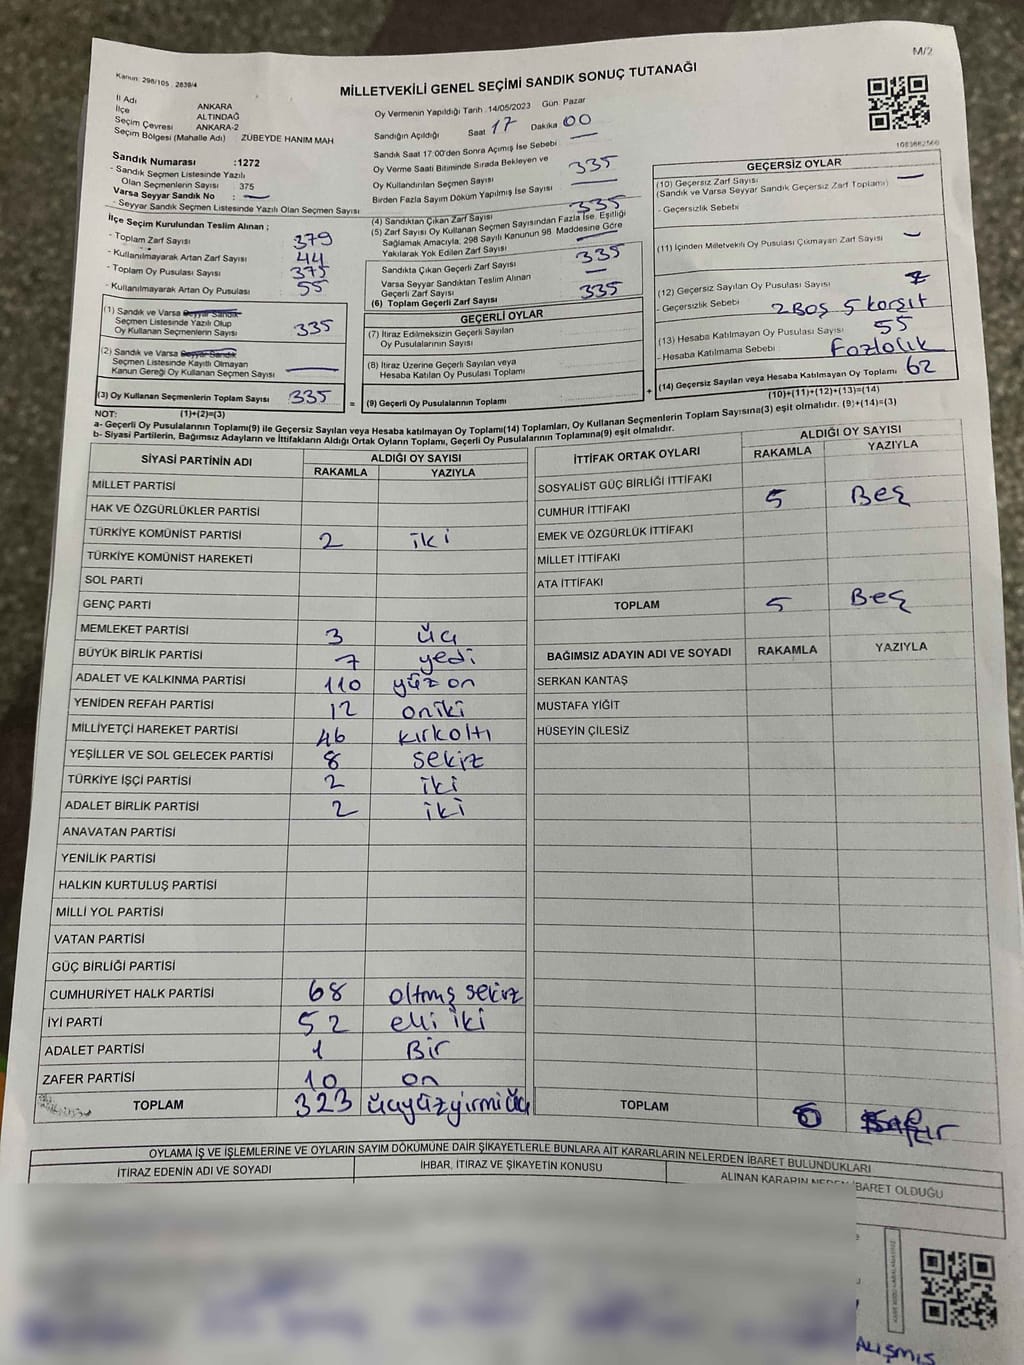 M/2
Kanun: 298/105 2839/4
MİLLETVEKİLİ GENEL SEÇİMİ SANDIK SONUÇ TUTANAĞI
İl Adı ANKARA
İlçe ALTINDAĞ
Seçim Çevresi ANKARA-2
Seçim Bölgesi (Mahalle Adı) ZÜBEYDE HANIM MAH
Sandık Numarası :1272
- Sandık Seçmen Listesinde Yazılı
Olan Seçmenlerin Sayısı 375
Varsa Seyyar Sandık No :
- Seyyar Sandık Seçmen Listesinde Yazılı Olan Seçmen Sayısı
İlçe Seçim Kurulundan Teslim Alınan ;
- Toplam Zarf Sayısı 379
- Kullanılmayarak Artan Zarf Sayısı 44
- Toplam Oy Pusulası Sayısı 375
- Kullanılmayarak Artan Oy Pusulası 55
(1) Sandık ve Varsa Seyyar Sandık
Seçmen Listesinde Yazılı Olup
Oy Kullanan Seçmenlerin Sayısı 335
(2) Sandık ve Varsa Seyyar Sandık
Seçmen Listesinde Kayıtlı Olmayan
Kanun Gereği Oy Kullanan Seçmen Sayısı
(3) Oy Kullanan Seçmenlerin Toplam Sayısı 335 =
Oy Vermenin Yapıldığı Tarih :14/05/2023 Gün: Pazar
Sandığın Açıldığı Saat 17 Dakika 00
Sandık Saat 17:00'den Sonra Açımış İse Sebebi
Oy Verme Saati Bitiminde Sırada Bekleyen ve
Oy Kullandırılan Seçmen Sayısı 335
Birden Fazla Sayım Döküm Yapılmış İse Sayısı
(4) Sandıktan Çıkan Zarf Sayısı 335
(5) Zarf Sayısı Oy Kullanan Seçmen Sayısından Fazla İse, Eşitliği
Sağlamak Amacıyla, 298 Sayılı Kanunun 98. Maddesine Göre
Yakılarak Yok Edilen Zarf Sayısı
Sandıkta Çıkan Geçerli Zarf Sayısı 335
Varsa Seyyar Sandıktan Teslim Alınan
Geçerli Zarf Sayısı
(6) Toplam Geçerli Zarf Sayısı 335
GEÇERLİ OYLAR
(7) İtiraz Edilmeksizin Geçerli Sayılan
Oy Pusulalarının Sayısı
(8) İtiraz Üzerine Geçerli Sayılan veya
Hesaba Katılan Oy Pusulası Toplamı
(9) Geçerli Oy Pusulalarının Toplamı +
1083662560
GEÇERSİZ OYLAR
(10) Geçersiz Zarf Sayısı
(Sandık ve Varsa Seyyar Sandık Geçersiz Zarf Toplamı)
- Geçersizlik Sebebi
(11) İçinden Milletvekili Oy Pusulası Çıkmayan Zarf Sayısı
(12) Geçersiz Sayılan Oy Pusulası Sayısı 7
- Geçersizlik Sebebi 2 Boş 5 karşıt
(13) Hesaba Katılmayan Oy Pusulası Sayısı 55
- Hesaba Katılmama Sebebi Fazlalık
(14) Geçersiz Sayılan veya Hesaba Katılmayan Oy Toplamı 62
(10)+(11)+(12)+(13)=(14)
NOT: (1)+(2)=(3)
a- Geçerli Oy Pusulalarının Toplamı(9) ile Geçersiz Sayılan veya Hesaba katılmayan Oy Toplamı(14) Toplamları, Oy Kullanan Seçmenlerin Toplam Sayısına(3) eşit olmalıdır. (9)+(14)=(3)
b- Siyasi Partilerin, Bağımsız Adayların ve İttifakların Aldığı Ortak Oyların Toplamı, Geçerli Oy Pusulalarının Toplamına(9) eşit olmalıdır.
SİYASİ PARTİNİN ADI ALDIĞI OY SAYISI
RAKAMLA YAZIYLA
MİLLET PARTİSİ
HAK VE ÖZGÜRLÜKLER PARTİSİ
TÜRKİYE KOMÜNİST PARTİSİ 2 iki
TÜRKİYE KOMÜNİST HAREKETİ
SOL PARTİ
GENÇ PARTİ
MEMLEKET PARTİSİ 3 üç
BÜYÜK BİRLİK PARTİSİ 7 yedi
ADALET VE KALKINMA PARTİSİ 110 yüz on
YENİDEN REFAH PARTİSİ 12 oniki
MİLLİYETÇİ HAREKET PARTİSİ 46 kırkaltı
YEŞİLLER VE SOL GELECEK PARTİSİ 8 sekiz
TÜRKİYE İŞÇİ PARTİSİ 2 iki
ADALET BİRLİK PARTİSİ 2 iki
ANAVATAN PARTİSİ
YENİLİK PARTİSİ
HALKIN KURTULUŞ PARTİSİ
MİLLİ YOL PARTİSİ
VATAN PARTİSİ
GÜÇ BİRLİĞİ PARTİSİ
CUMHURİYET HALK PARTİSİ 68 altmış sekiz
İYİ PARTİ 52 elli iki
ADALET PARTİSİ 1 Bir
ZAFER PARTİSİ 10 on
TOPLAM 323 üçyüzyirmiüç
İTTİFAK ORTAK OYLARI ALDIĞI OY SAYISI
RAKAMLA YAZIYLA
SOSYALİST GÜÇ BİRLİĞİ İTTİFAKI
CUMHUR İTTİFAKI 5 Beş
EMEK VE ÖZGÜRLÜK İTTİFAKI
MİLLET İTTİFAKI
ATA İTTİFAKI
TOPLAM 5 Beş
BAĞIMSIZ ADAYIN ADI VE SOYADI RAKAMLA YAZIYLA
SERKAN KANTAŞ
MUSTAFA YİĞİT
HÜSEYİN ÇİLESİZ
TOPLAM
OYLAMA İŞ VE İŞLEMLERİNE VE OYLARIN SAYIM DÖKÜMÜNE DAİR ŞİKAYETLERLE BUNLARA AİT KARARLARIN NELERDEN İBARET BULUNDUKLARI
İTİRAZ EDENİN ADI VE SOYADI İHBAR, İTİRAZ VE ŞİKAYETİN KONUSU ALINAN KARARIN NEDEN İBARET OLDUĞU
ALIŞMIŞ